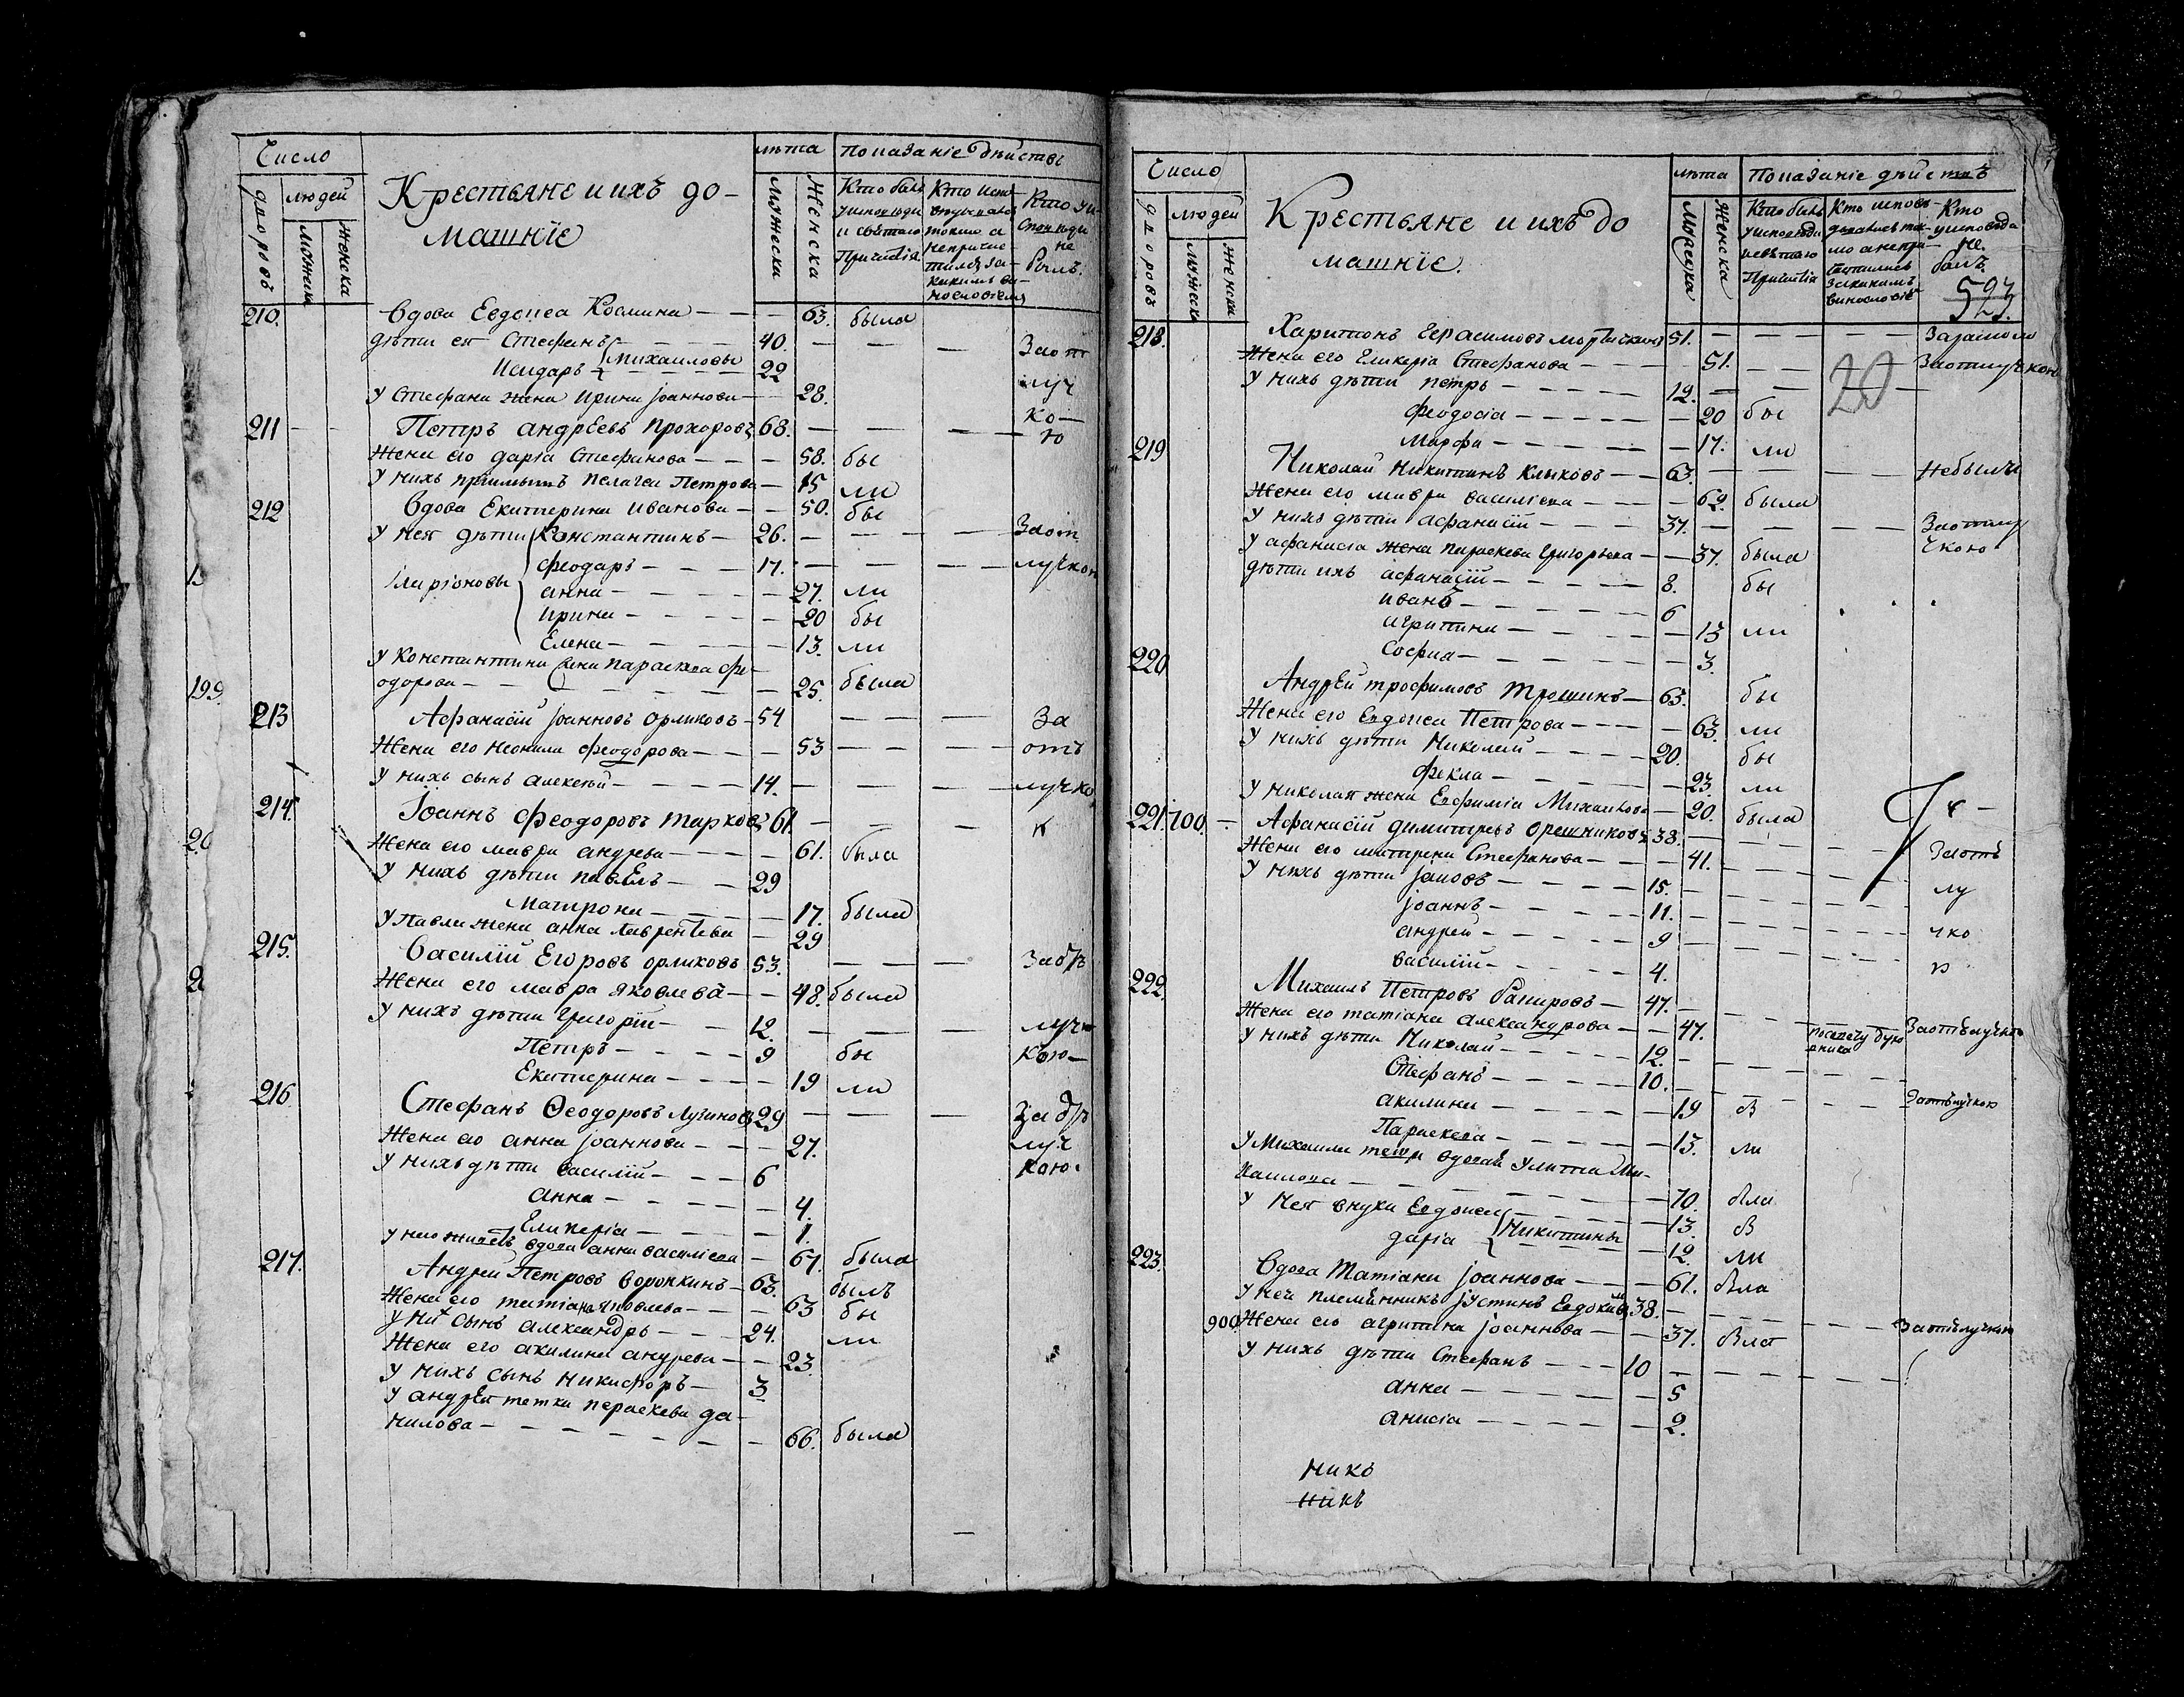 Число
дворовъ
людей
мужеска
женска
Крестьяне и ихъ до-
машніе
лѣта
Мужеска
Женска
Показаніе дѣйствъ
Кто былъ
у исповѣди
и святаго
Причастія
Кто исповѣдывался
токмо а
непричас-
тился за-
какимъ ви-
нословіемъ
Кто у и-
сповѣди
не
былъ.
210. Вдова Евдокеа Космина — — — 63. была
дѣти ея Стефанъ — — — 40. — — — За от
Исидаръ Михаиловы 22 луч
У Стефана жена Ирина Іоаннова — — 28. ко—
211 — — Петръ Андреевъ Прохоровъ 68. — — — ю
Жена его Даріа Стефанова — — — 58. бы
У нихъ Пелагеа Петрова — 15 ли
212 Вдова Екатерина Иванова — — 50. бы
У нея дѣти Константинъ — 26. — — — За от
Феодаръ — — — 17. — — — лучкою
Іларіоновы Анна — — — 27. ли
Ирина — — — 20 бы
Елена — — — 13. ли
У Константина жена Параскева Фе-
одорова — — — 25. была
199.
213 Афанасій Іоанновъ Орликовъ — 54 — — — За
Жена его Неонила Феодорова — — — 53 — — — отъ
У нихъ сынъ Алексѣй — — — 14. — — — лучко
214. Іоаннъ Феодоровъ Марковъ 61. — — — ю
Жена его Мавра Андрева — — — 61. была
У нихъ дѣти Павелъ — — 29
Матрона — — — 17. была
У Павла жена Анна Лаврентева — 29
215. Василій Егоровъ Орликовъ 53. — — — За отъ
Жена его Мавра Яковлева — — 48. была
У нихъ дѣти Григорій — — 12. — — — луч
Петръ — — — 9 бы кою—
Екатерина — — — 19 ли
216 Стефанъ Ѳеодоровъ Лугиновъ 29 — — — За отъ
Жена его Анна Іоаннова — — — 27. луч
У нихъ дѣти Василій — — — 6 кою.
Анна — — — 4.
Гликеріа — — — 1.
У него живетъ вдова Анна Василіева — 67. была
217. Андрей Петровъ Воропкинъ — 63. былъ
Жена его Татіана Яковлева — — 63 бы
У ни сынъ Александръ — — — 24. ли
Жена его Акилина Андрева — — 23.
У нихъ сынъ Никифоръ — 3
У Андрея тетка Параскева Да-
нилова — — — 66. была
Число
дворовъ
людей
мужеск
женска
Крестьяне и ихъ до
машніе.
лѣта
Мужеска
Женска
Показаніе дѣйствъ
Кто былъ
у исповѣди
и святаго
Причастія
Кто исповѣ-
дывались то-
мо а непри-
частились
за какимъ
винословіе
Кто
у исповѣда
не.
былъ.
593
218. Харитонъ Герасимовъ 51. — — —
Жена его Гликеріа Стефанова — — — 51. — — За отлучкою
У нихъ дѣти Петръ — — — 12. — — 20
Феодосіа — — — 20 бы
Марфа — — — 17. ли
219 Николай Никитинъ Клыковъ — — 63. — — — Небылъ
Жена его Мавра Василіева — — — 62. была
У нихъ дѣти Афанасій — — — 37. — — — За отлу
У Афанасіа жена Параскева Григорьева — — 37. была чкою
Дѣти ихъ Афанасій — — — 8. бы
Иванъ — — — 6
Агрипина — — — 13 ли
София — — — 3.
220 Андрей Трофимовъ Трошинъ — 63. бы
Жена его Евдокеа Петрова — — — 63. ли
У нихъ дѣти Николай — — — 20. бы
Фекла — — — 23. ли
У Николая жена Евфиміа Михаилова — 20. была
221. 100. — Афанасій Димитревъ Орешниковъ 38. — — —
Жена его Матрена Стефанова — — — 41. — — — За отъ
У нихъ дѣти Іаковъ — — — 15. — — — лу
Іоаннъ — — — 11. — — —
Андрей — — — 9 — — — чко
Василій — — — 4. ю
222. Михаилъ Петровъ Банировъ — 47. — — —
Жена его Татіана Александрова — — 47. За отълучкою
У нихъ дѣти Николай — — — 12. — — —
Стефанъ — — — 10. — — —
Акилина — — — 19 б За отълучкою
Параскева — — — 13. ли
У Михаила вдова Улита Ми-
хаилова — — — 70. бла
У нея внуки Евдокеа Никитины — 13. б
Даріа — — — 12. ли
223. Вдова Татіана Іоаннова — — — 61. бла
У нея племянникъ Іустинъ Евдокимовъ 38. — — —
900. Жена его Агрипина Іоаннова — — 37. бла За отълучкою
У нихъ дѣти Стефанъ — — — 10 — — —
Анна — — — 5
Анисіа — — — 2.
никъ
никъ